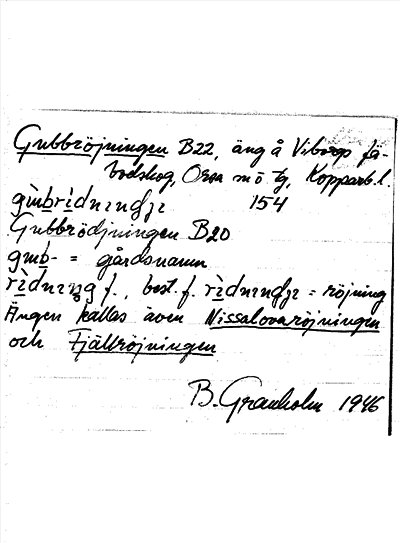 Gubbröjningen B22, äng å Viborgs fä-
bodskog, Orsa sn o tg, Kopparb. l.
154
Gubbrödjningen B20
= gårdsnamn
f., best. f. = röjning
Ängen kallas även Nissalovaröjningen
och Fjällröjningen
B. Granholm 1946